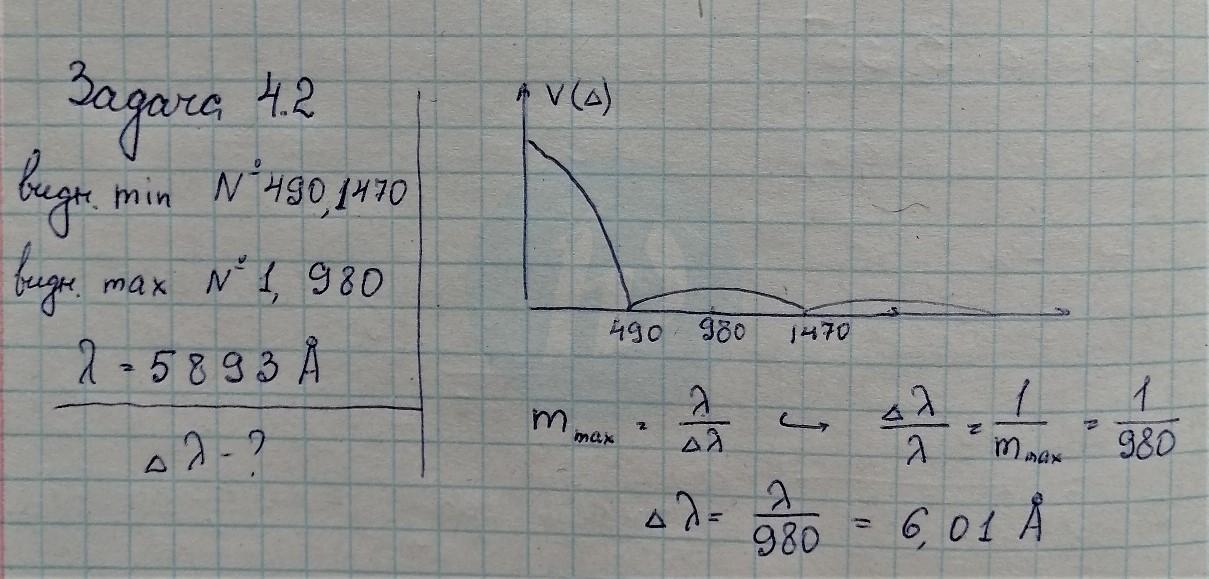 Задача 4.2
видн. min № 490, 1470
видн. max № 1, 980
λ = 5893 Å
Δλ - ?
V(Δ)
490 980 1470
m max = λ/Δλ ↪ Δλ/λ = 1/m max = 1/980
Δλ = λ/980 = 6,01 Å